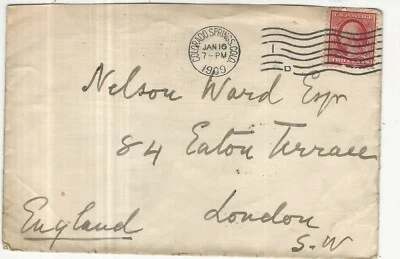 COLORADO SPRINGS, COLO.
JAN 16
7-PM
1909
1
D
U.S. POSTAGE
TWO CENTS
Nelson Ward Esqr
84 Eaton Terrace
London
S.W
England